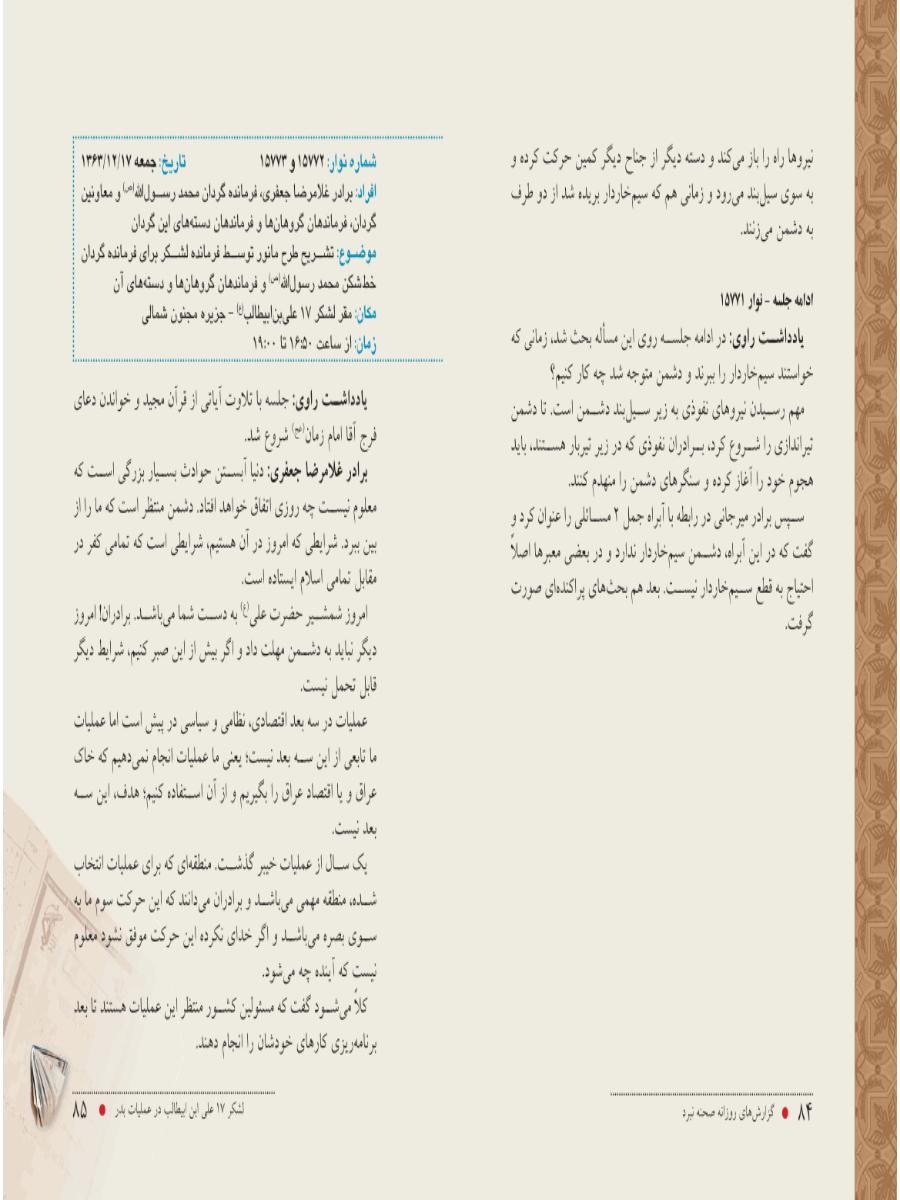 نیروها راه را باز می‌کند و دسته دیگر از جناح دیگر کمین حرکت کرده و
به سوی سیل‌بند می‌رود و زمانی هم که سیم‌خاردار بریده شد از دو طرف
به دشمن می‌زنند.
ادامه جلسه - نوار ۱۵۷۷۱
یادداشت راوی: در ادامه جلسه روی این مسأله بحث شد، زمانی که
خواستند سیم‌خاردار را ببرند و دشمن متوجه شد چه کار کنیم؟
مهم رسیدن نیروهای نفوذی به زیر سیل‌بند دشمن است. تا دشمن
تیراندازی را شروع کرد، برادران نفوذی که در زیر تیربار هستند، باید
هجوم خود را آغاز کرده و سنگرهای دشمن را منهدم کنند.
سپس برادر میرجانی در رابطه با آبراه جمل ۲ مسائلی را عنوان کرد و
گفت که در این آبراه، دشمن سیم‌خاردار ندارد و در بعضی معبرها اصلاً
احتیاج به قطع سیم‌خاردار نیست. بعد هم بحث‌های پراکنده‌ای صورت
گرفت.
۸۴ ● گزارش‌های روزانه صحنه نبرد
شماره نوار: ۱۵۷۷۲ و ۱۵۷۷۳ تاریخ: جمعه ۱۳۶۳/۱۲/۱۷
افراد: برادر غلامرضا جعفری، فرمانده گردان محمد رسول‌الله(ص) و معاونین
گردان، فرماندهان گروهان‌ها و فرماندهان دسته‌های این گردان
موضوع: تشریح طرح مانور توسط فرمانده لشکر برای فرمانده گردان
خط‌شکن محمد رسول‌الله(ص) و فرماندهان گروهان‌ها و دسته‌های آن
مکان: مقر لشکر ۱۷ علی‌بن‌ابیطالب(ع) - جزیره مجنون شمالی
زمان: از ساعت ۱۶:۵۰ تا ۱۹:۰۰
یادداشت راوی: جلسه با تلاوت آیاتی از قرآن مجید و خواندن دعای
فرج آقا امام زمان(عج) شروع شد.
برادر غلامرضا جعفری: دنیا آبستن حوادث بسیار بزرگی است که
معلوم نیست چه روزی اتفاق خواهد افتاد. دشمن منتظر است که ما را از
بین ببرد. شرایطی که امروز در آن هستیم، شرایطی است که تمامی کفر در
مقابل تمامی اسلام ایستاده است.
امروز شمشیر حضرت علی(ع) به دست شما می‌باشد. برادران! امروز
دیگر نباید به دشمن مهلت داد و اگر بیش از این صبر کنیم، شرایط دیگر
قابل تحمل نیست.
عملیات در سه بعد اقتصادی، نظامی و سیاسی در پیش است اما عملیات
ما تابعی از این سه بعد نیست؛ یعنی ما عملیات انجام نمی‌دهیم که خاک
عراق و یا اقتصاد عراق را بگیریم و از آن استفاده کنیم؛ هدف، این سه
بعد نیست.
یک سال از عملیات خیبر گذشت. منطقه‌ای که برای عملیات انتخاب
شده، منطقه مهمی می‌باشد و برادران می‌دانند که این حرکت سوم ما به
سوی بصره می‌باشد و اگر خدای نکرده این حرکت موفق نشود معلوم
نیست که آینده چه می‌شود.
کلاً می‌شود گفت که مسئولین کشور منتظر این عملیات هستند تا بعد
برنامه‌ریزی کارهای خودشان را انجام دهند.
لشکر ۱۷ علی ابن ابیطالب در عملیات بدر ● ۸۵